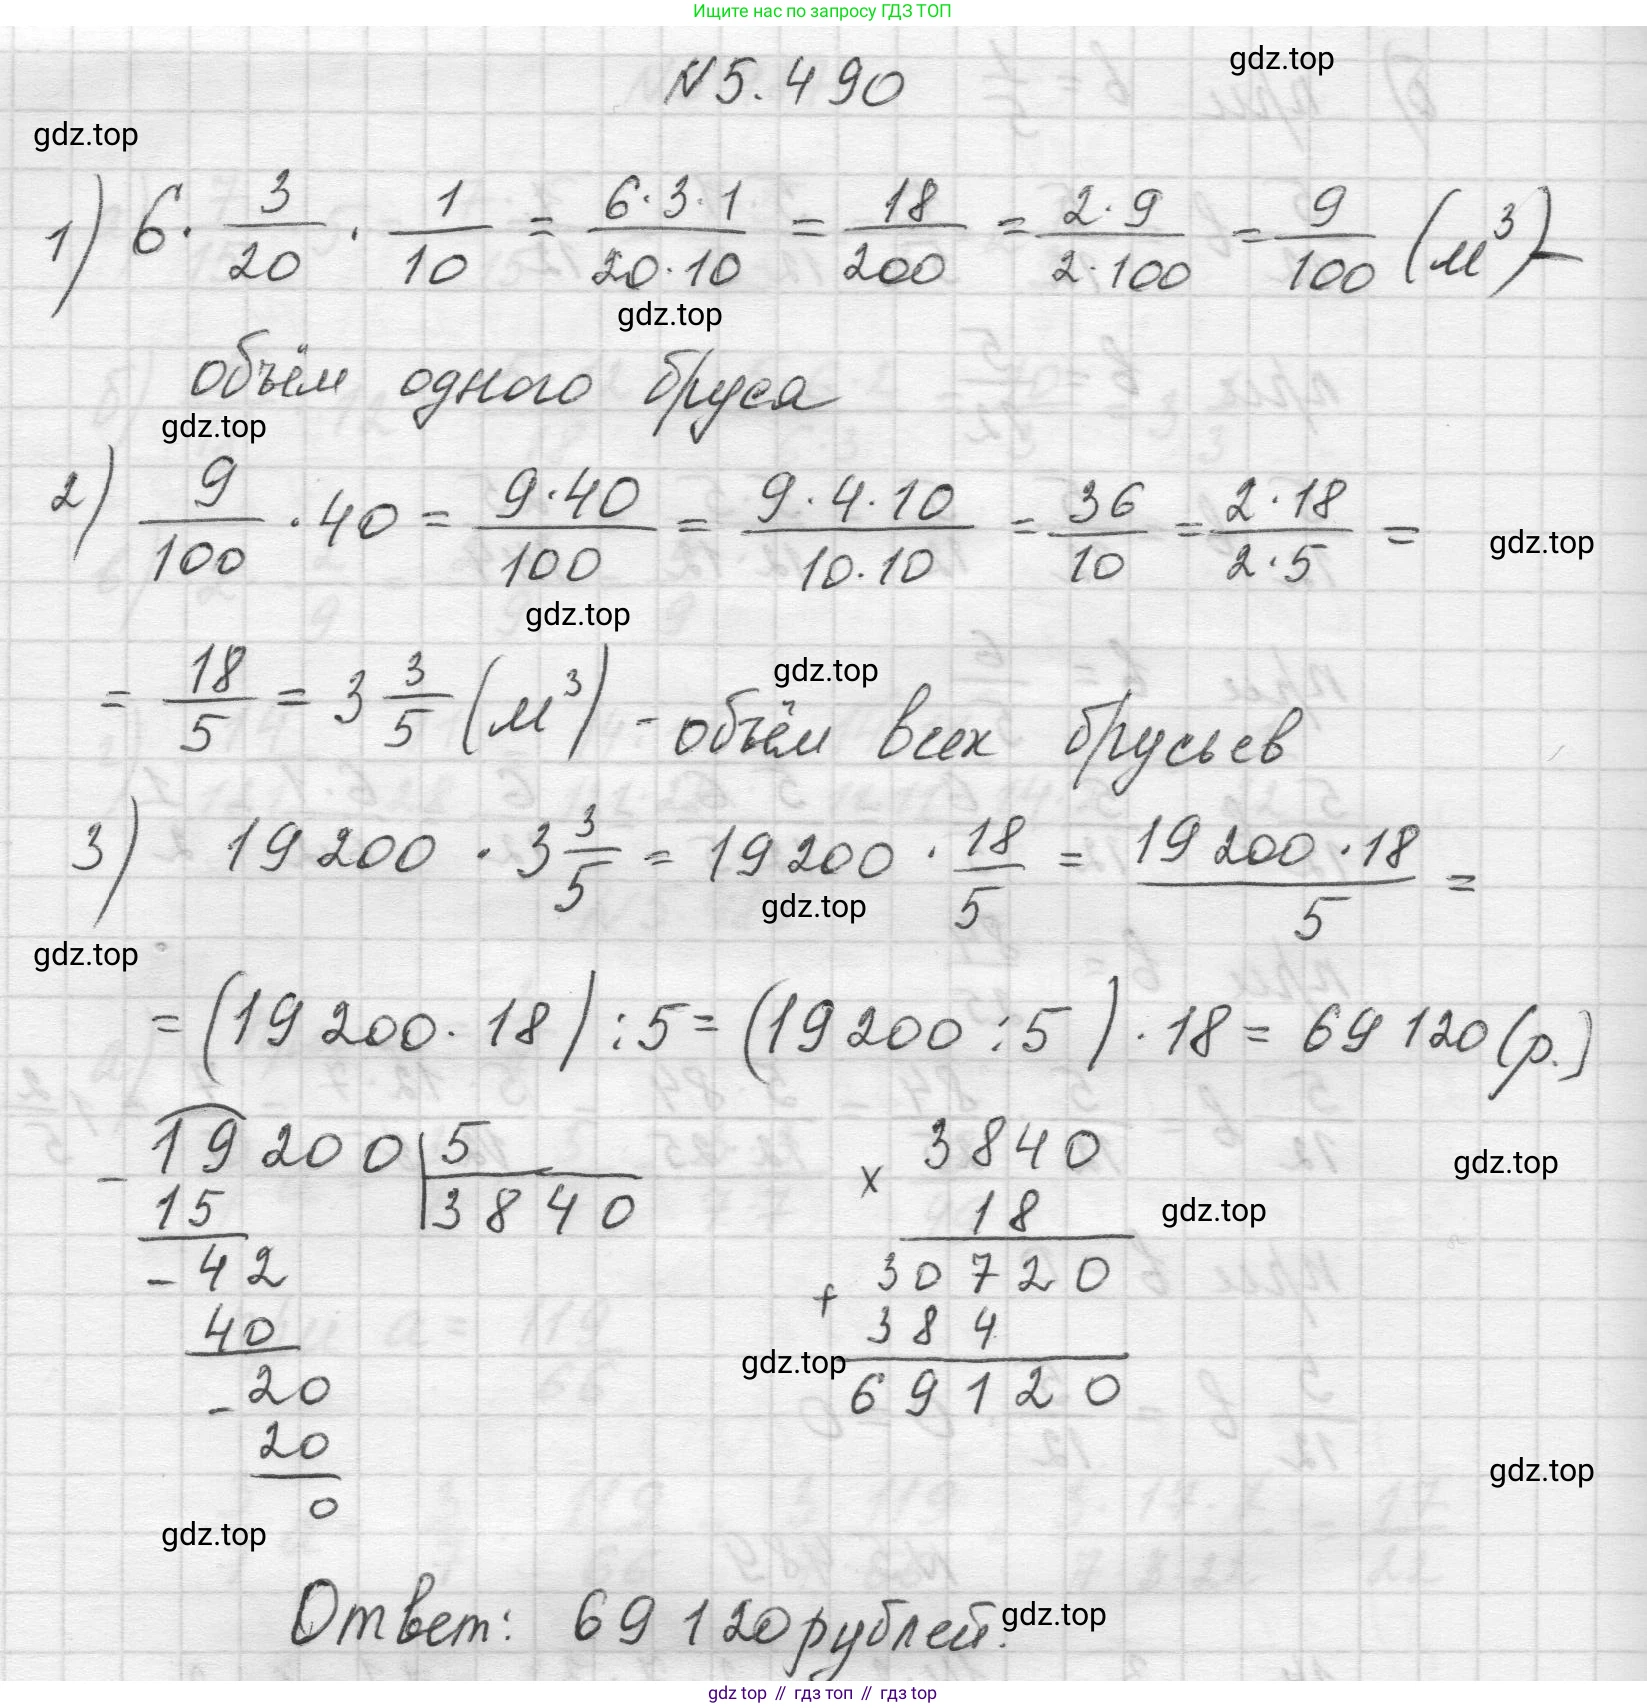 Ищите нас по запросу ГДЗ ТОП
№5.490
gdz.top
gdz.top
1) 6 · 3/20 · 1/10 = 6·3·1/20·10 = 18/200 = 2·9/2·100 = 9/100 (м³) –
gdz.top
объём одного бруса
gdz.top
2) 9/100 · 40 = 9·40/100 = 9·4·10/10·10 = 36/10 = 2·18/2·5 =
gdz.top
gdz.top
= 18/5 = 3 3/5 (м³) - объём всех брусьев
gdz.top
3) 19 200 · 3 3/5 = 19 200 · 18/5 = 19 200 · 18/5 =
gdz.top
gdz.top
= (19 200 · 18) : 5 = (19 200 : 5) · 18 = 69 120 (р.)
- 19200 | 5
15
3840
- 42
40
- 20
20
0
× 3840
18
+ 30720
384
69120
gdz.top
gdz.top
gdz.top
gdz.top
gdz.top
Ответ: 69 120 рублей.
gdz.top
gdz top // гдз топ // gdz top